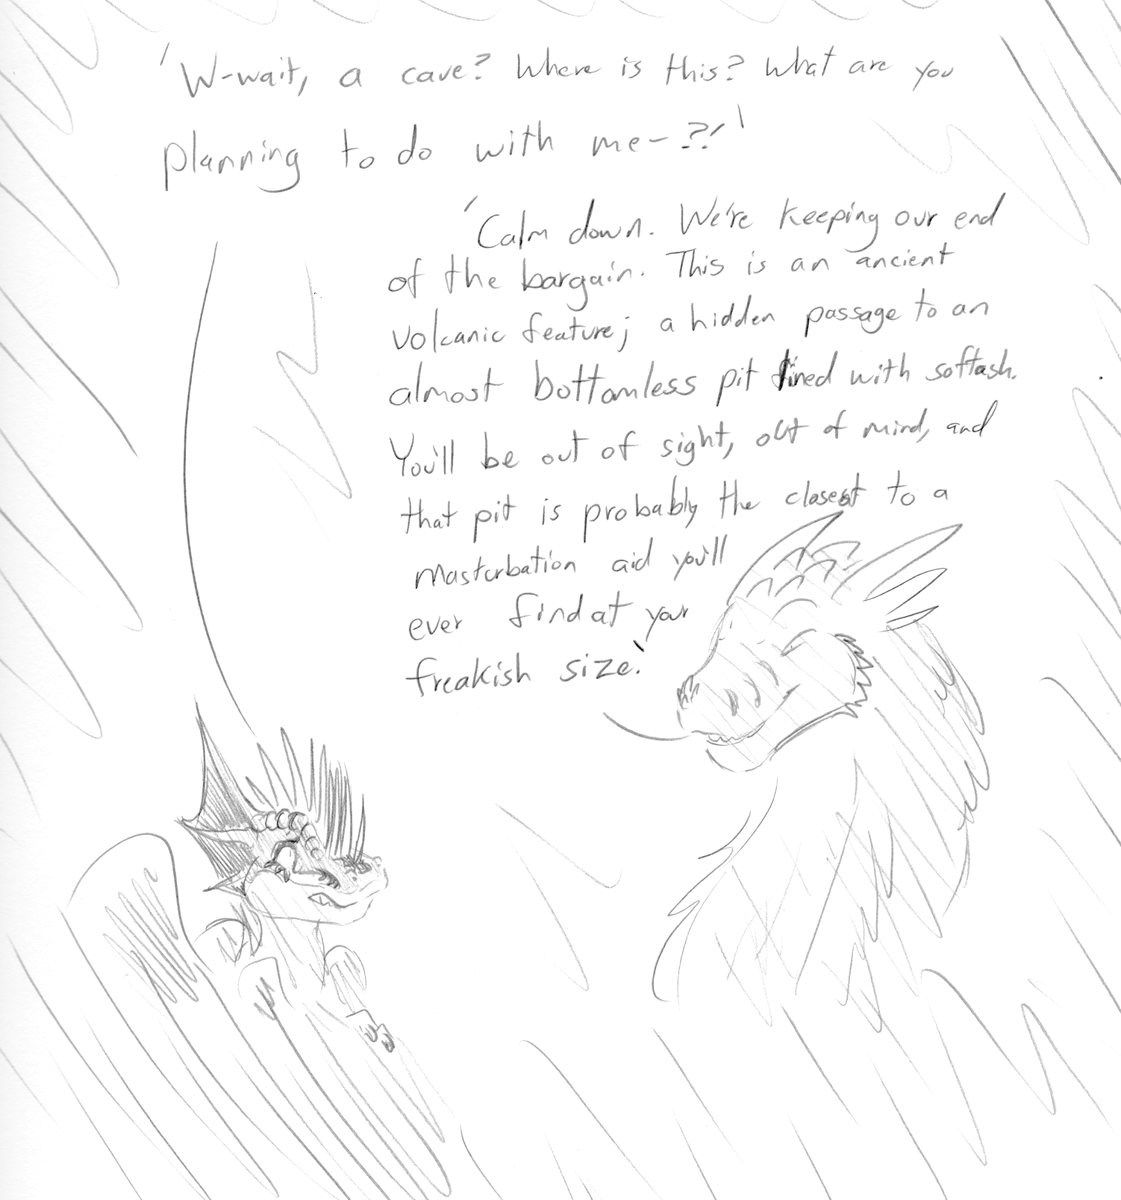 'W-wait, a cave? Where is this? What are you
planning to do with me-??'
'Calm down. We're keeping our end
of the bargain. This is an ancient
volcanic feature; a hidden passage to an
almost bottomless pit lined with soft ash.
You'll be out of sight, out of mind, and
that pit is probably the closest to a
masturbation aid you'll
ever find at your
freakish size.'